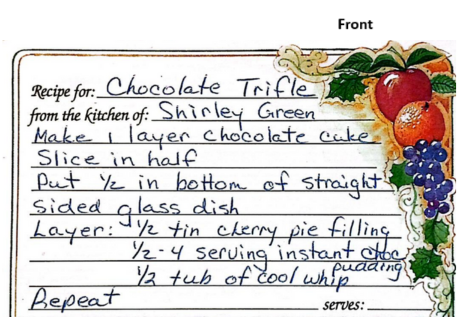 Front
Recipe for: Chocolate Trifle
from the kitchen of: Shirley Green
Make 1 layer chocolate cake
Slice in half
Put 1/2 in bottom of straight
sided glass dish
Layer: 1/2 tin cherry pie filling
1/2 - 4 serving instant choc pudding
1/2 tub of cool whip
Repeat
serves: